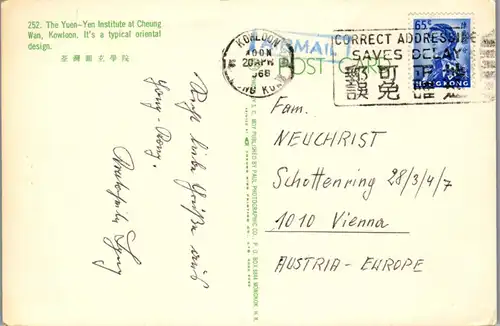 252. The Yuen-Yen Institute at Cheung
Wan, Kowloon, It's a typical oriental
design.
荃灣圓玄學院
Recht liebe Grüße aus
Hong-Kong.
POST CARD
AIR MAIL
KOWLOON
NOON
20 APR
1968
HONG KONG
CORRECT ADDRESSING
SAVES DELAY
65c
HONG KONG
Fam.
NEUCHRIST
Schottenring 28/3/4/7
1010 Vienna
AUSTRIA-EUROPE
PUBLISHED BY PAUL PHOTOGRAPHIC CO., P. O. BOX